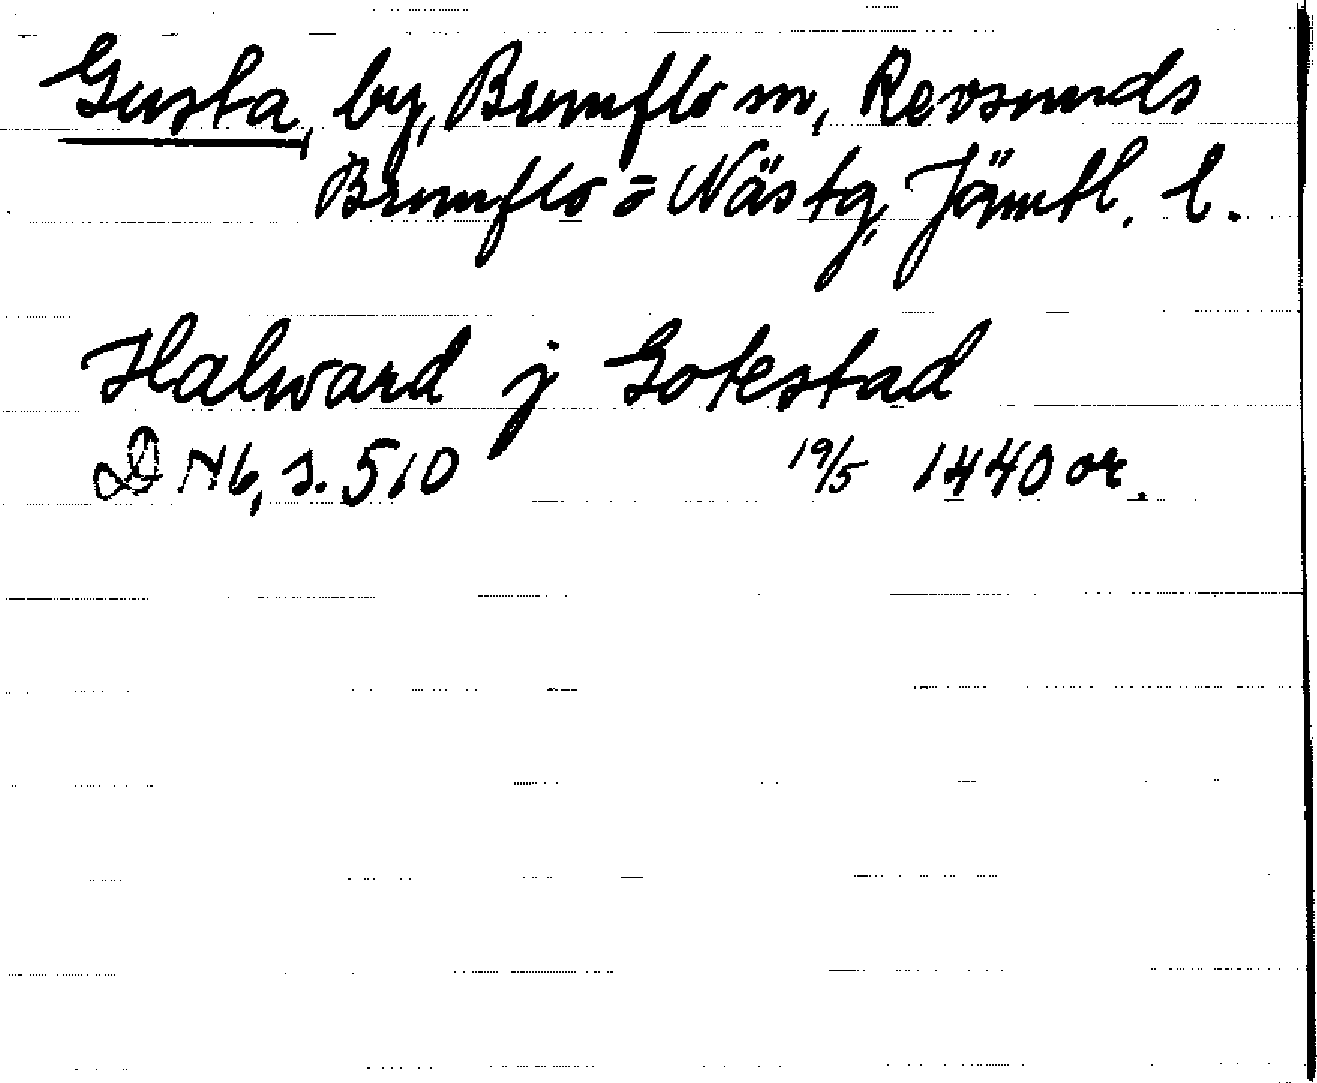 Gusta, by, Brunflo sn, Revsunds
Brunflo = Näs tg, Jämtl. l.
Halward j Gotestad
DN 16, s. 510 19/5 1440 or.